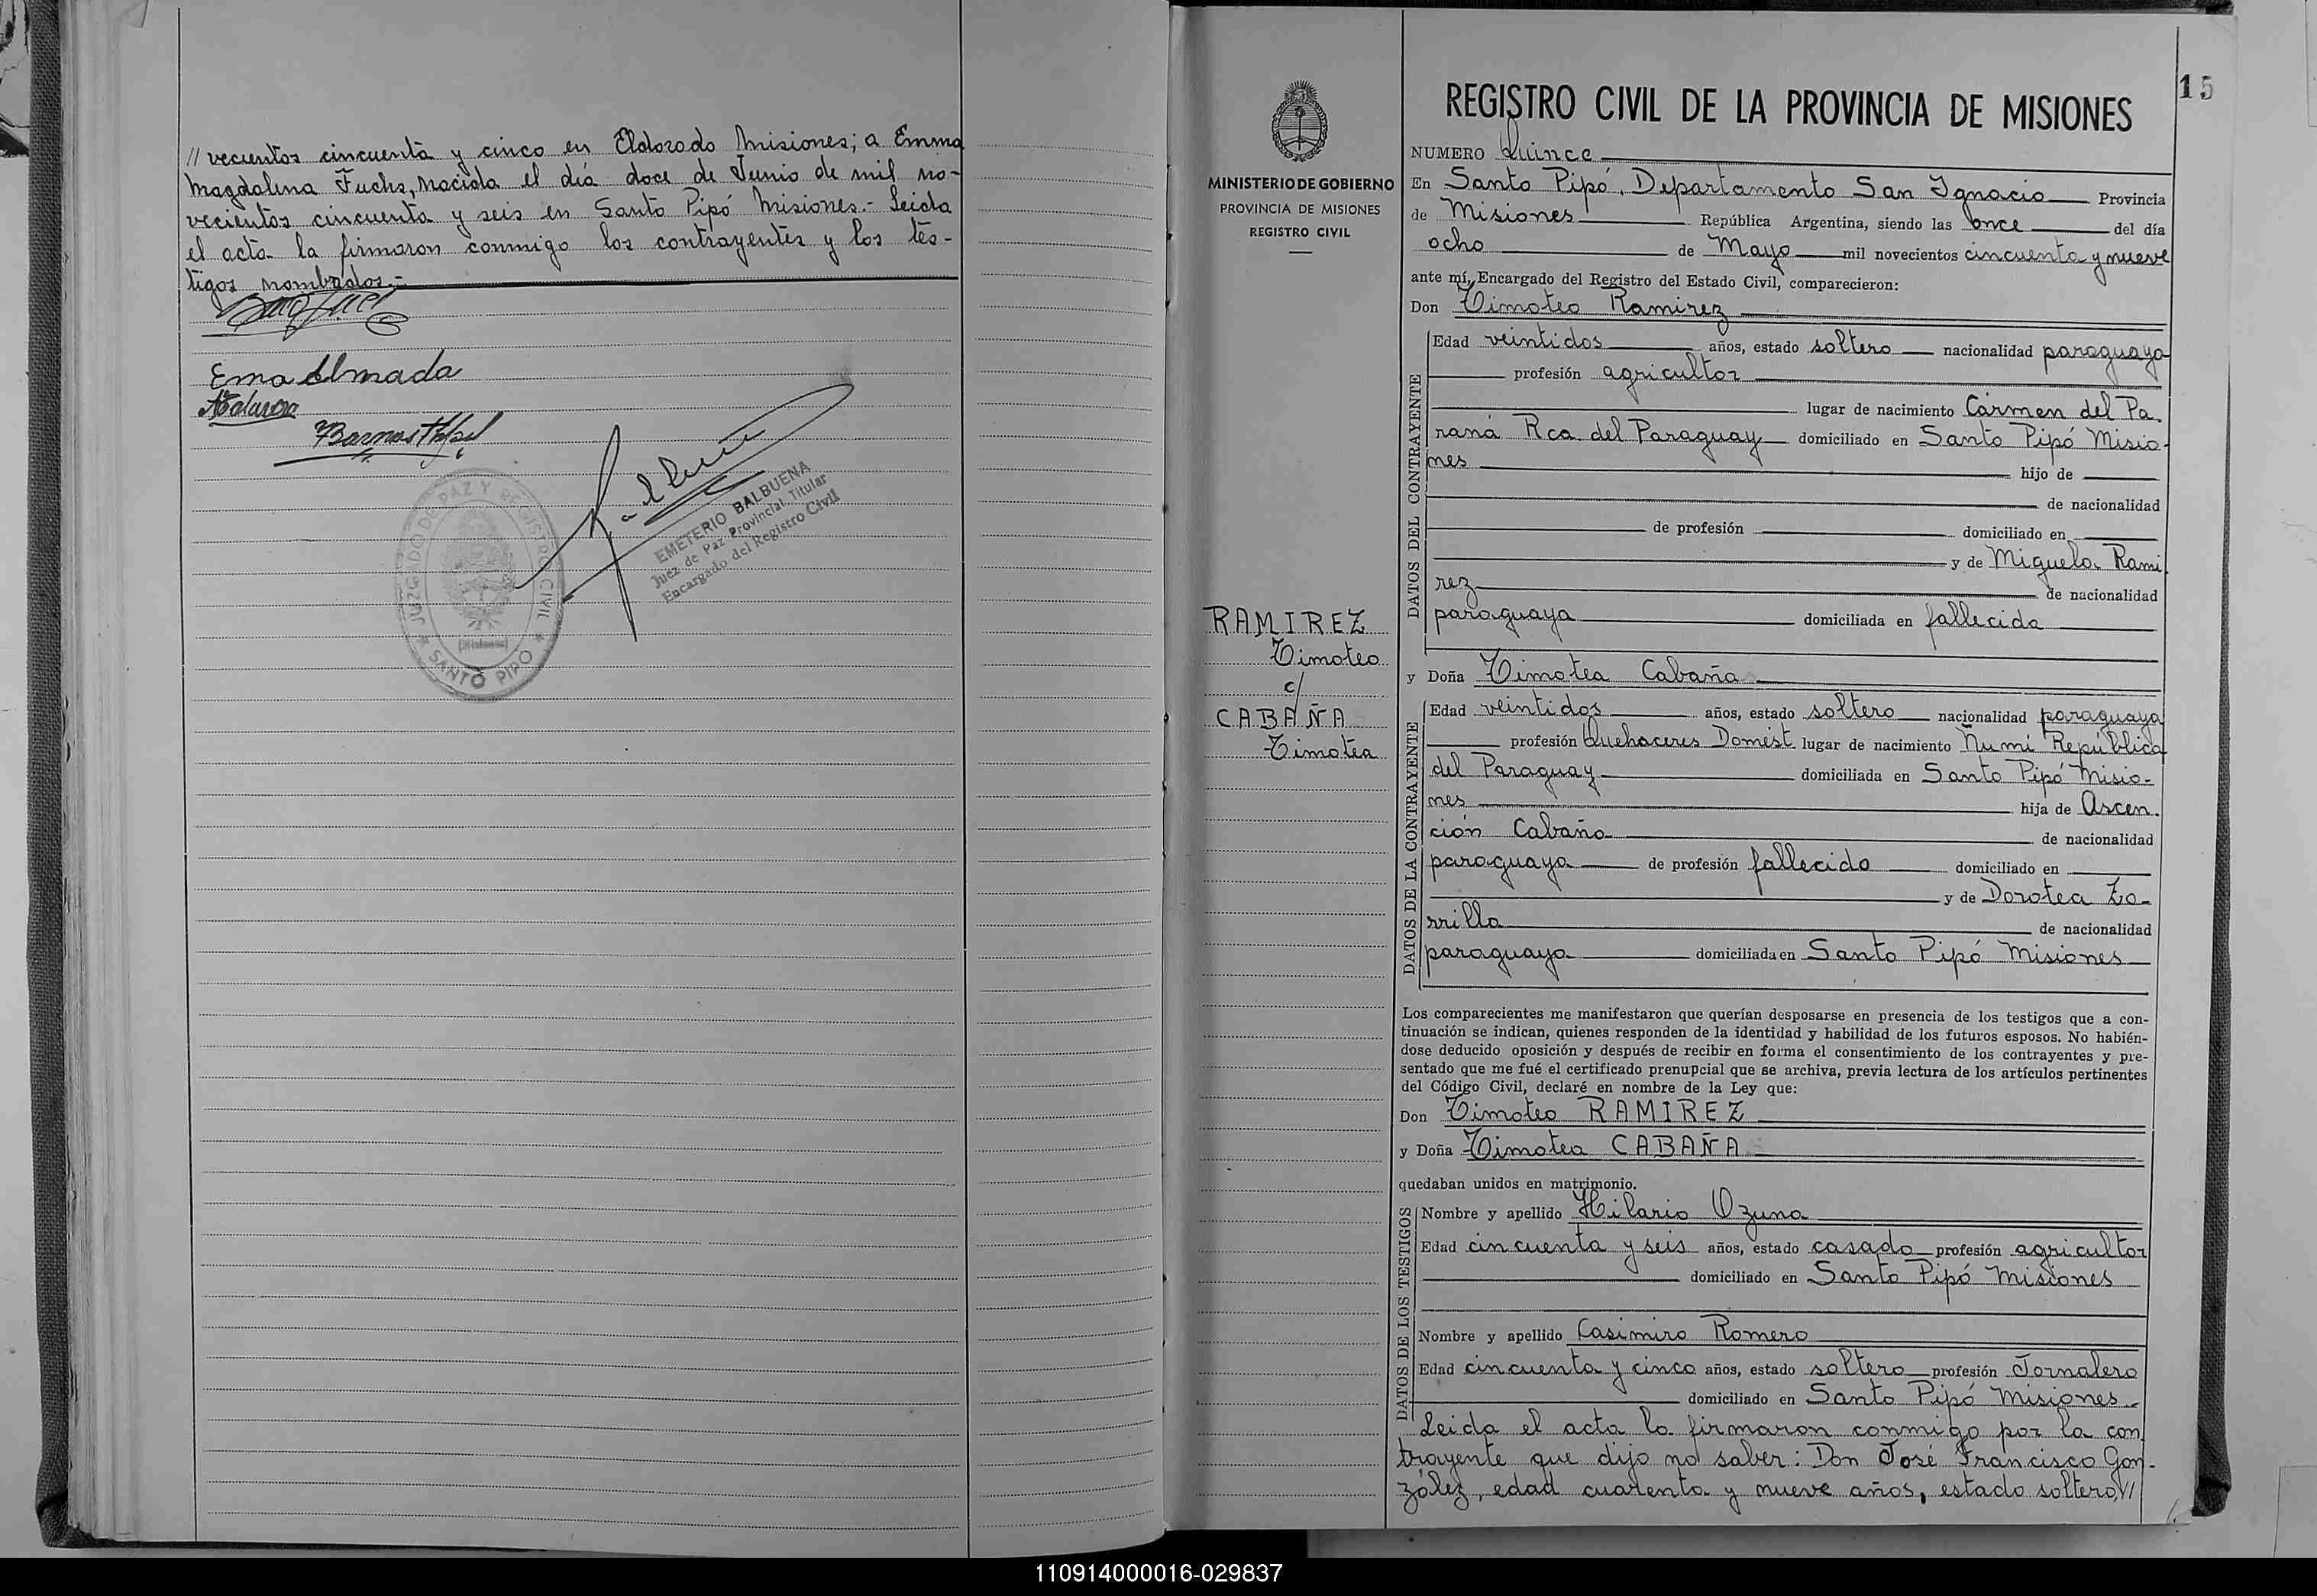 // vecientos cincuenta y cinco en Eldorado Misiones; a Emma
Magdalena Fuchs, nacida el día doce de Junio de mil no-
vecientos cincuenta y seis en Santo Pipó Misiones.- Leida
el acta la firmaron conmigo los contrayentes y los tes-
tigos nombrados.-
Ema Almada
JUZGADO DE PAZ Y REGISTRO CIVIL
(Misiones)
* SANTO PIPO *
EMETERIO BALBUENA
Juez de Paz Provincial Titular
Encargado del Registro Civil
15
MINISTERIO DE GOBIERNO
PROVINCIA DE MISIONES
REGISTRO CIVIL
RAMIREZ
Timoteo
c/
CABAÑA
Timotea
REGISTRO CIVIL DE LA PROVINCIA DE MISIONES
NUMERO Quince
En Santo Pipó, Departamento San Ignacio Provincia
de Misiones República Argentina, siendo las once del día
ocho de Mayo mil novecientos cincuenta y nueve
ante mí, Encargado del Registro del Estado Civil, comparecieron:
Don Timoteo Ramirez
DATOS DEL CONTRAYENTE
Edad veintidos años, estado soltero nacionalidad paraguaya
profesión agricultor
lugar de nacimiento Cármen del Pa-
raná Rca. del Paraguay domiciliado en Santo Pipó Misio-
nes hijo de
de nacionalidad
de profesión domiciliado en
y de Miguela Rami-
rez de nacionalidad
paraguaya domiciliada en fallecida
y Doña Timotea Cabaña
DATOS DE LA CONTRAYENTE
Edad veintidos años, estado soltero nacionalidad paraguaya
profesión Quehaceres Domést. lugar de nacimiento Ñumí República
del Paraguay domiciliada en Santo Pipó Misio-
nes hija de Ascen-
ción Cabaña de nacionalidad
paraguaya de profesión fallecido domiciliado en
y de Dorotea Zo-
rrilla de nacionalidad
paraguaya domiciliada en Santo Pipó Misiones
Los comparecientes me manifestaron que querían desposarse en presencia de los testigos que a con-
tinuación se indican, quienes responden de la identidad y habilidad de los futuros esposos. No habién-
dose deducido oposición y después de recibir en forma el consentimiento de los contrayentes y pre-
sentado que me fué el certificado prenupcial que se archiva, previa lectura de los artículos pertinentes
del Código Civil, declaré en nombre de la Ley que:
Don Timoteo RAMIREZ
y Doña Timotea CABAÑA
quedaban unidos en matrimonio.
DATOS DE LOS TESTIGOS
Nombre y apellido Hilario Ozuna
Edad cincuenta y seis años, estado casado profesión agricultor
domiciliado en Santo Pipó Misiones
Nombre y apellido Casimiro Romero
Edad cincuenta y cinco años, estado soltero profesión Jornalero
domiciliado en Santo Pipó Misiones.
Leida el acta la firmaron conmigo por la con
trayente que dijo no saber: Don José Francisco Gon-
zález, edad cuarenta y nueve años, estado soltero,//
110914000016-029837